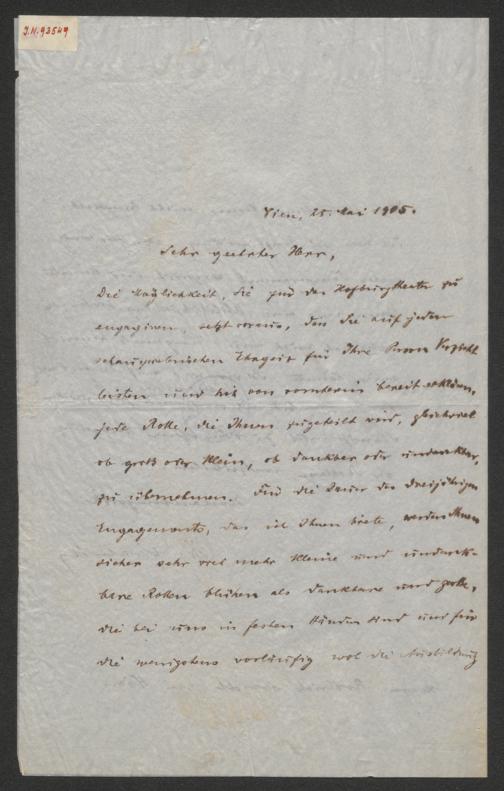 J.N.93549
Wien, 25. Mai 1905.
Sehr geehrter Herr,
Die Möglichkeit, Sie für das Hofburgtheater zu
engagiren, setzt voraus, dass Sie auf jeden
schauspielerischen Ehrgeiz für Ihre Person Verzicht
leisten und sich von vornherein bereit erklären,
jede Rolle, die Ihnen zugeteilt wird, gleichviel
ob groß oder klein, ob dankbar oder undankbar,
zu übernehmen. Für die Dauer des dreijährigen
Engagements, das ich Ihnen biete, werden Ihnen
sicher sehr viel mehr kleine und undank-
bare Rollen blühen als dankbare und große,
die bei uns in festen Händen sind und für
die wenigstens vorläufig wol die Ausbildung